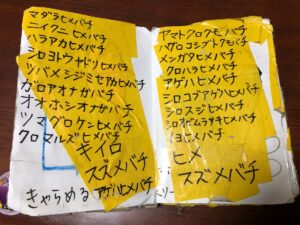 マダラヒメバチ
ニイクニヒメバチ
ハラアカヒメバチ
シロヨトウヤドリヒメバチ
ツバメシジミセアカヒメバチ
ガロアオナガバチ
オオホシオナガバチ
ツマグロケンヒメバチ
クロマルズヒメバチ
キイロ
スズメバチ
きゃらめる アゲハヒメバチ
ヤマトクロクモバチ
ハグロコシブトクモバチ
メンガタヒメバチ
クロハラヒメバチ
アゲハヒメバチ
シロコブアゲハヒメバチ
シロスジヒメバチ
シロスジムラサキヒメバチ
イヨヒメバチ
ヒメ
スズメバチ